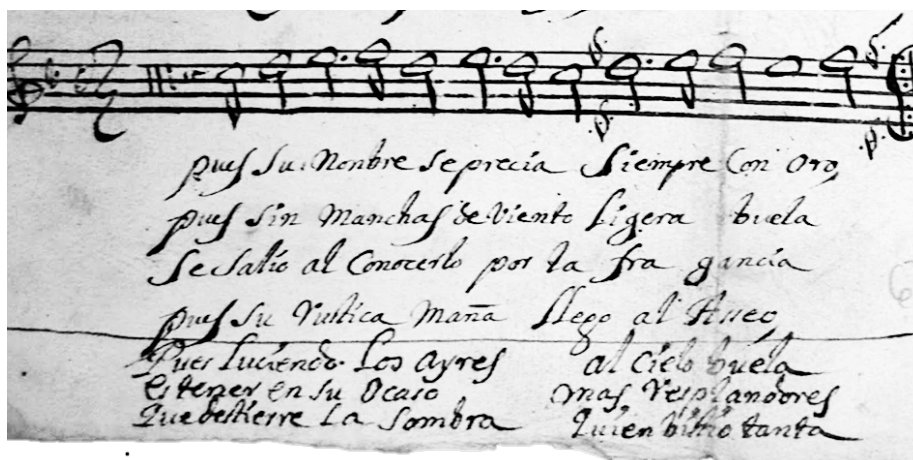 pues su Nonbre se precia siempre Con oro
pues sin manchas de viento ligera buela
se salio al Conocerlo por la fra gancia
pues su rustica maña llego al Asseo
Pues Luciendo Los ayres al Cielo buela
es tener en su Ocaso mas resplandores
que destierre La sombra quien bistio tanta